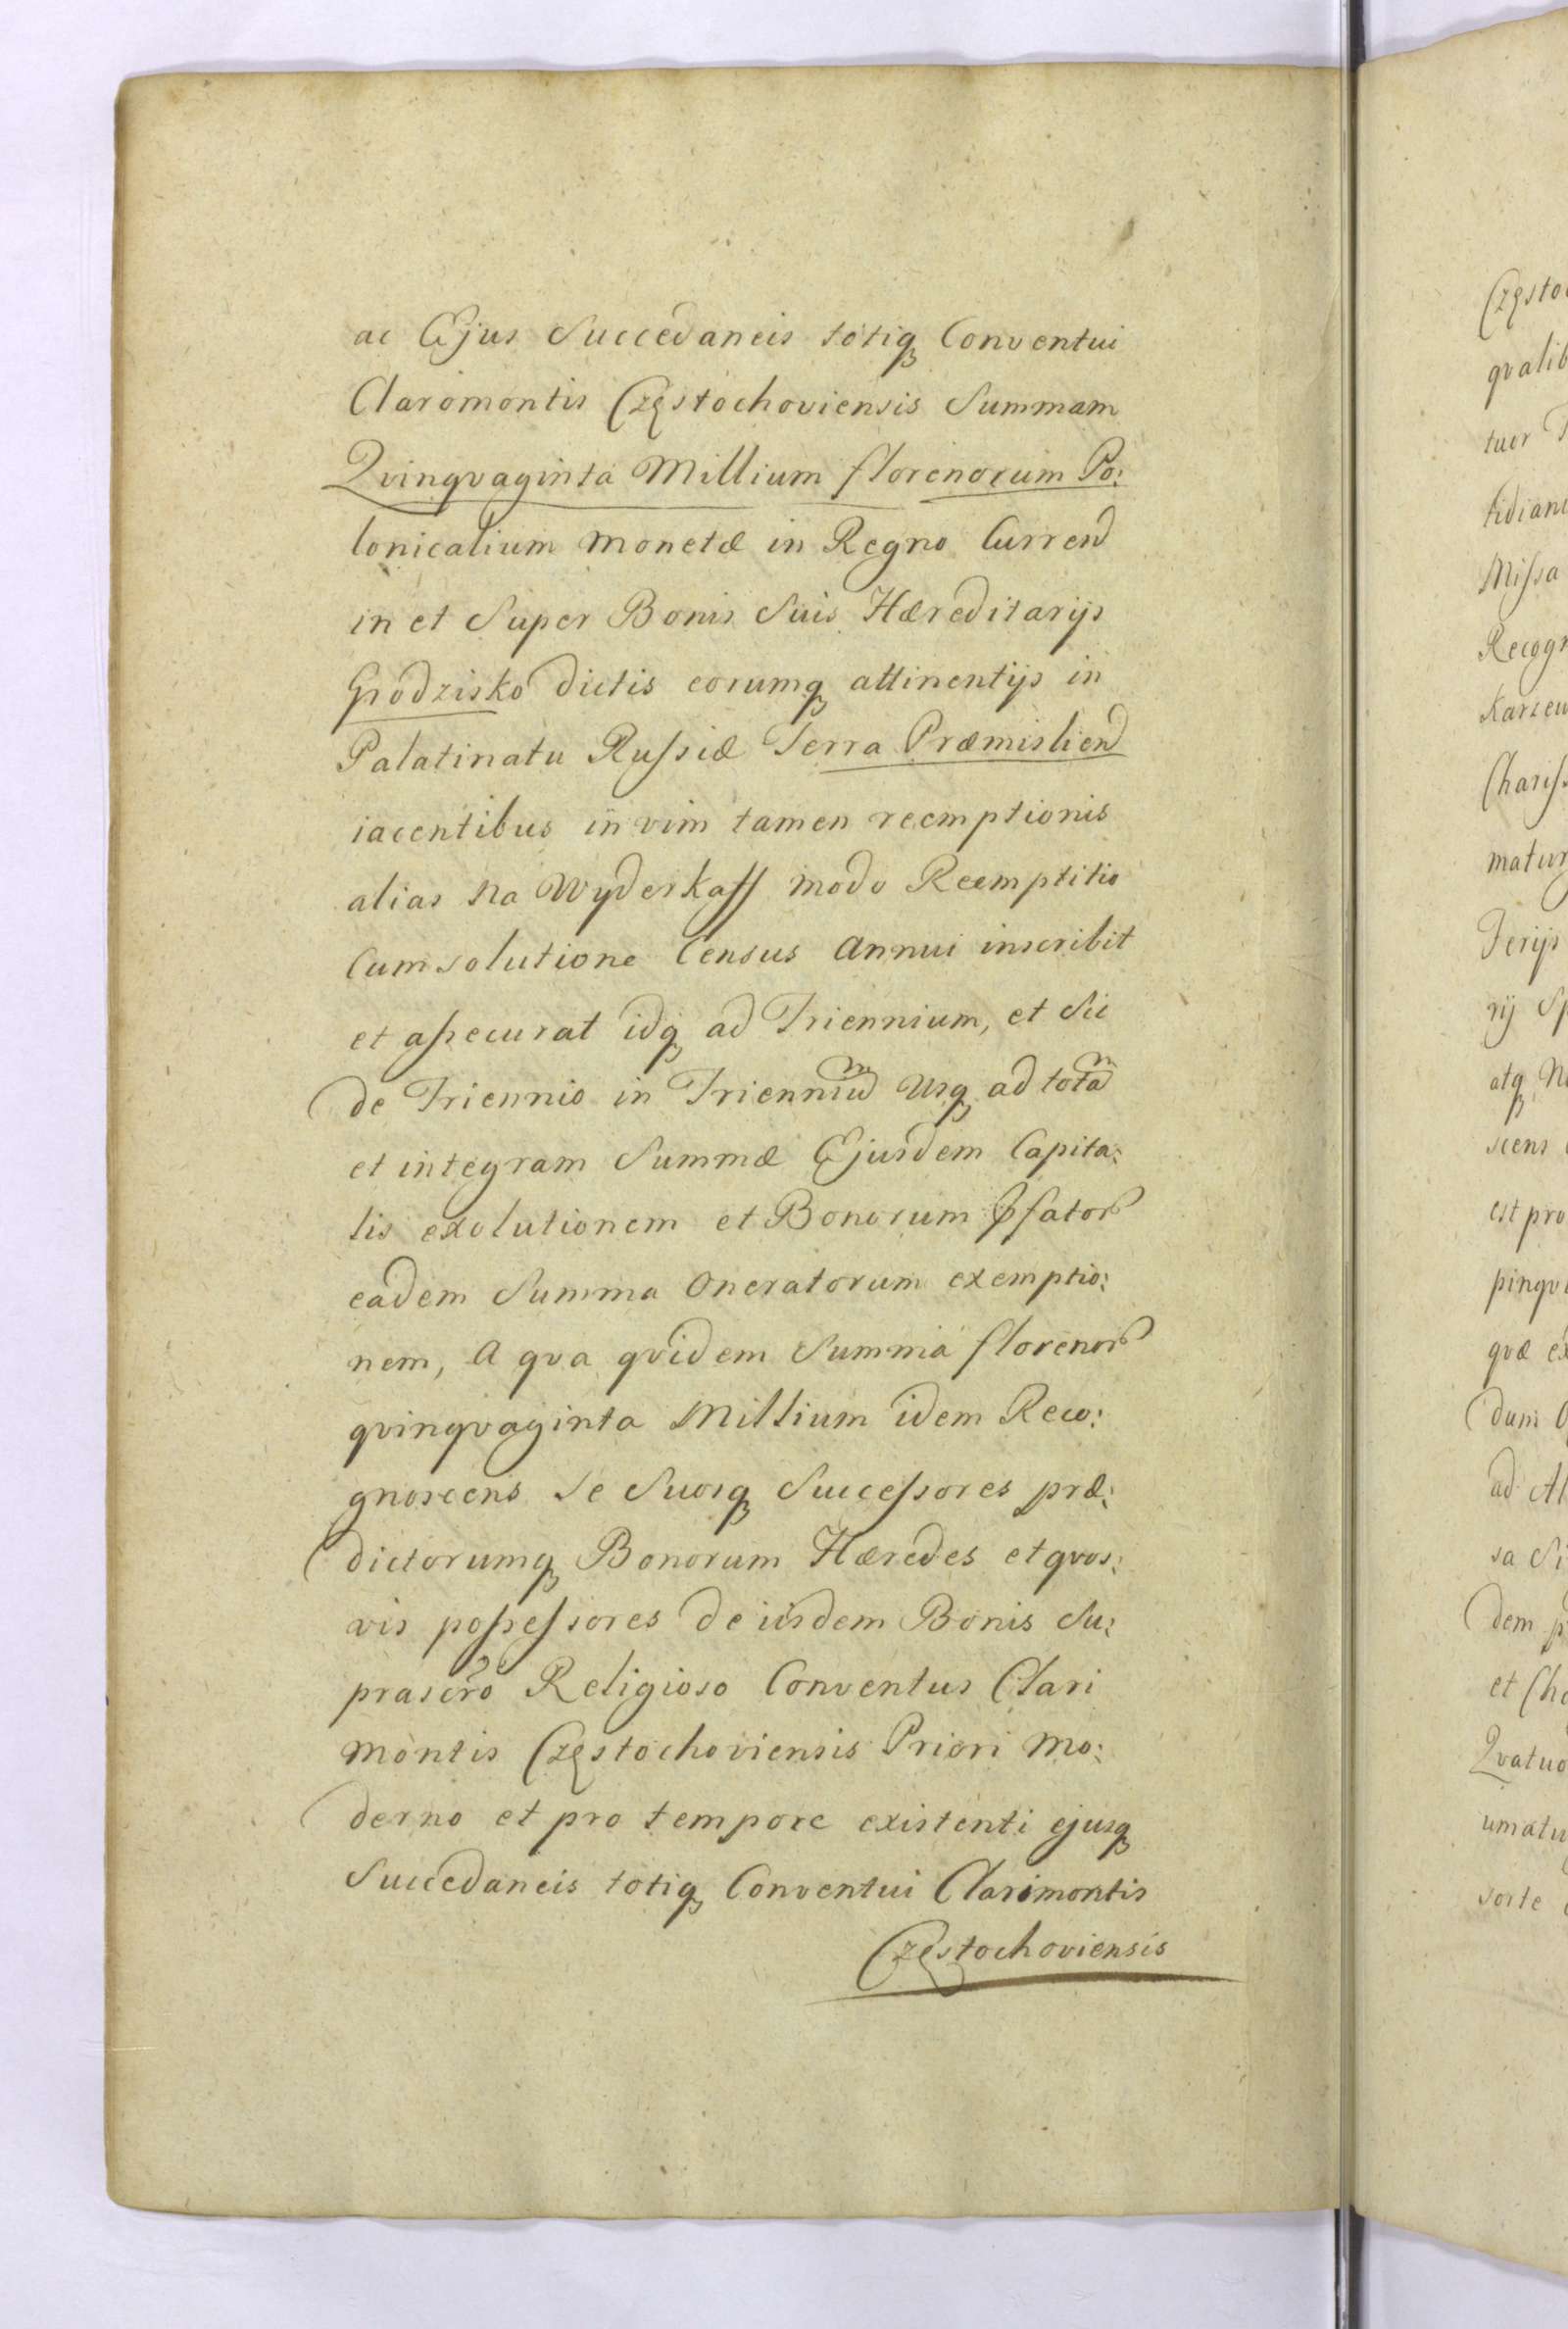 ac Ejus Succedaneis totiq3 Conventui
Claromontis Częstochoviensis Summam
Qvinqvaginta Millium florenorum Po:
lonicalium Monetæ in Regno Currend
in et Super Bonis Suis Hæreditarijs
Grodzisko dictis eorumq3 attinentijs in
Palatinatu Russiæ Terra Præmisliend
iacentibus in vim tamen reemptionis
alias Na Wyderkaff modo Reemptitio
Cum solutione Census Annui inscribit
et assecurat idq3 ad Triennium, et Sic
de Triennio in Trienniũ Usq3 ad totã
et integram Summæ Ejusdem Capita:
lis exolutionem et Bonorum Pfator
eadem Summa Oneratorum exemptio:
nem, A qva qvidem Summa florenor
qvinqvaginta Millium idem Reco:
gnoscens Se Suosq3 Successores præ:
dictorumq3 Bonorum Hæredes et qvos:
vis possessores de iisdem Bonis Su:
prascr̃o Religioso Conventus Clari
Montis Częstochoviensis Priori Mo:
derno et pro tempore existenti ejusq3
Succedaneis totiq3 Conventui Clarimontis
Częstochoviensis
Często
qvalib
tuor
tidian
Missa
Recogn
Karsew
Chariss
matur
Ferijs
rij Sp
atq3
scens
est pro
pinqv
qvæ ex
dum
ad Al
sa Si
dem
et Cho
Qvatuo
umatu
sorte